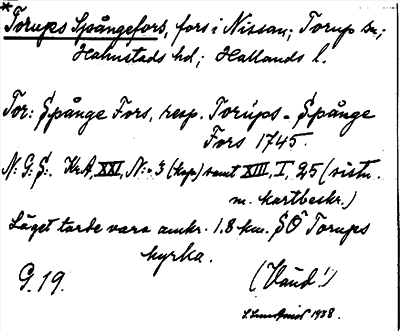 *Torups Spångefors, fors i Nissan; Torup sn;
Halmstads hd; Hallands l.
Tor: Spånge Fors, resp. Torups-Spånge
Fors 1745.
N: G: S:. KrA, XXI, N:o 3 (kop) samt XIII, I, 25 (sistn.
m. kartbeskr.)
Läget torde vara omkr. 1.8 km. SO Torups
kyrka.
G. 19. (Vaud!)
1938.